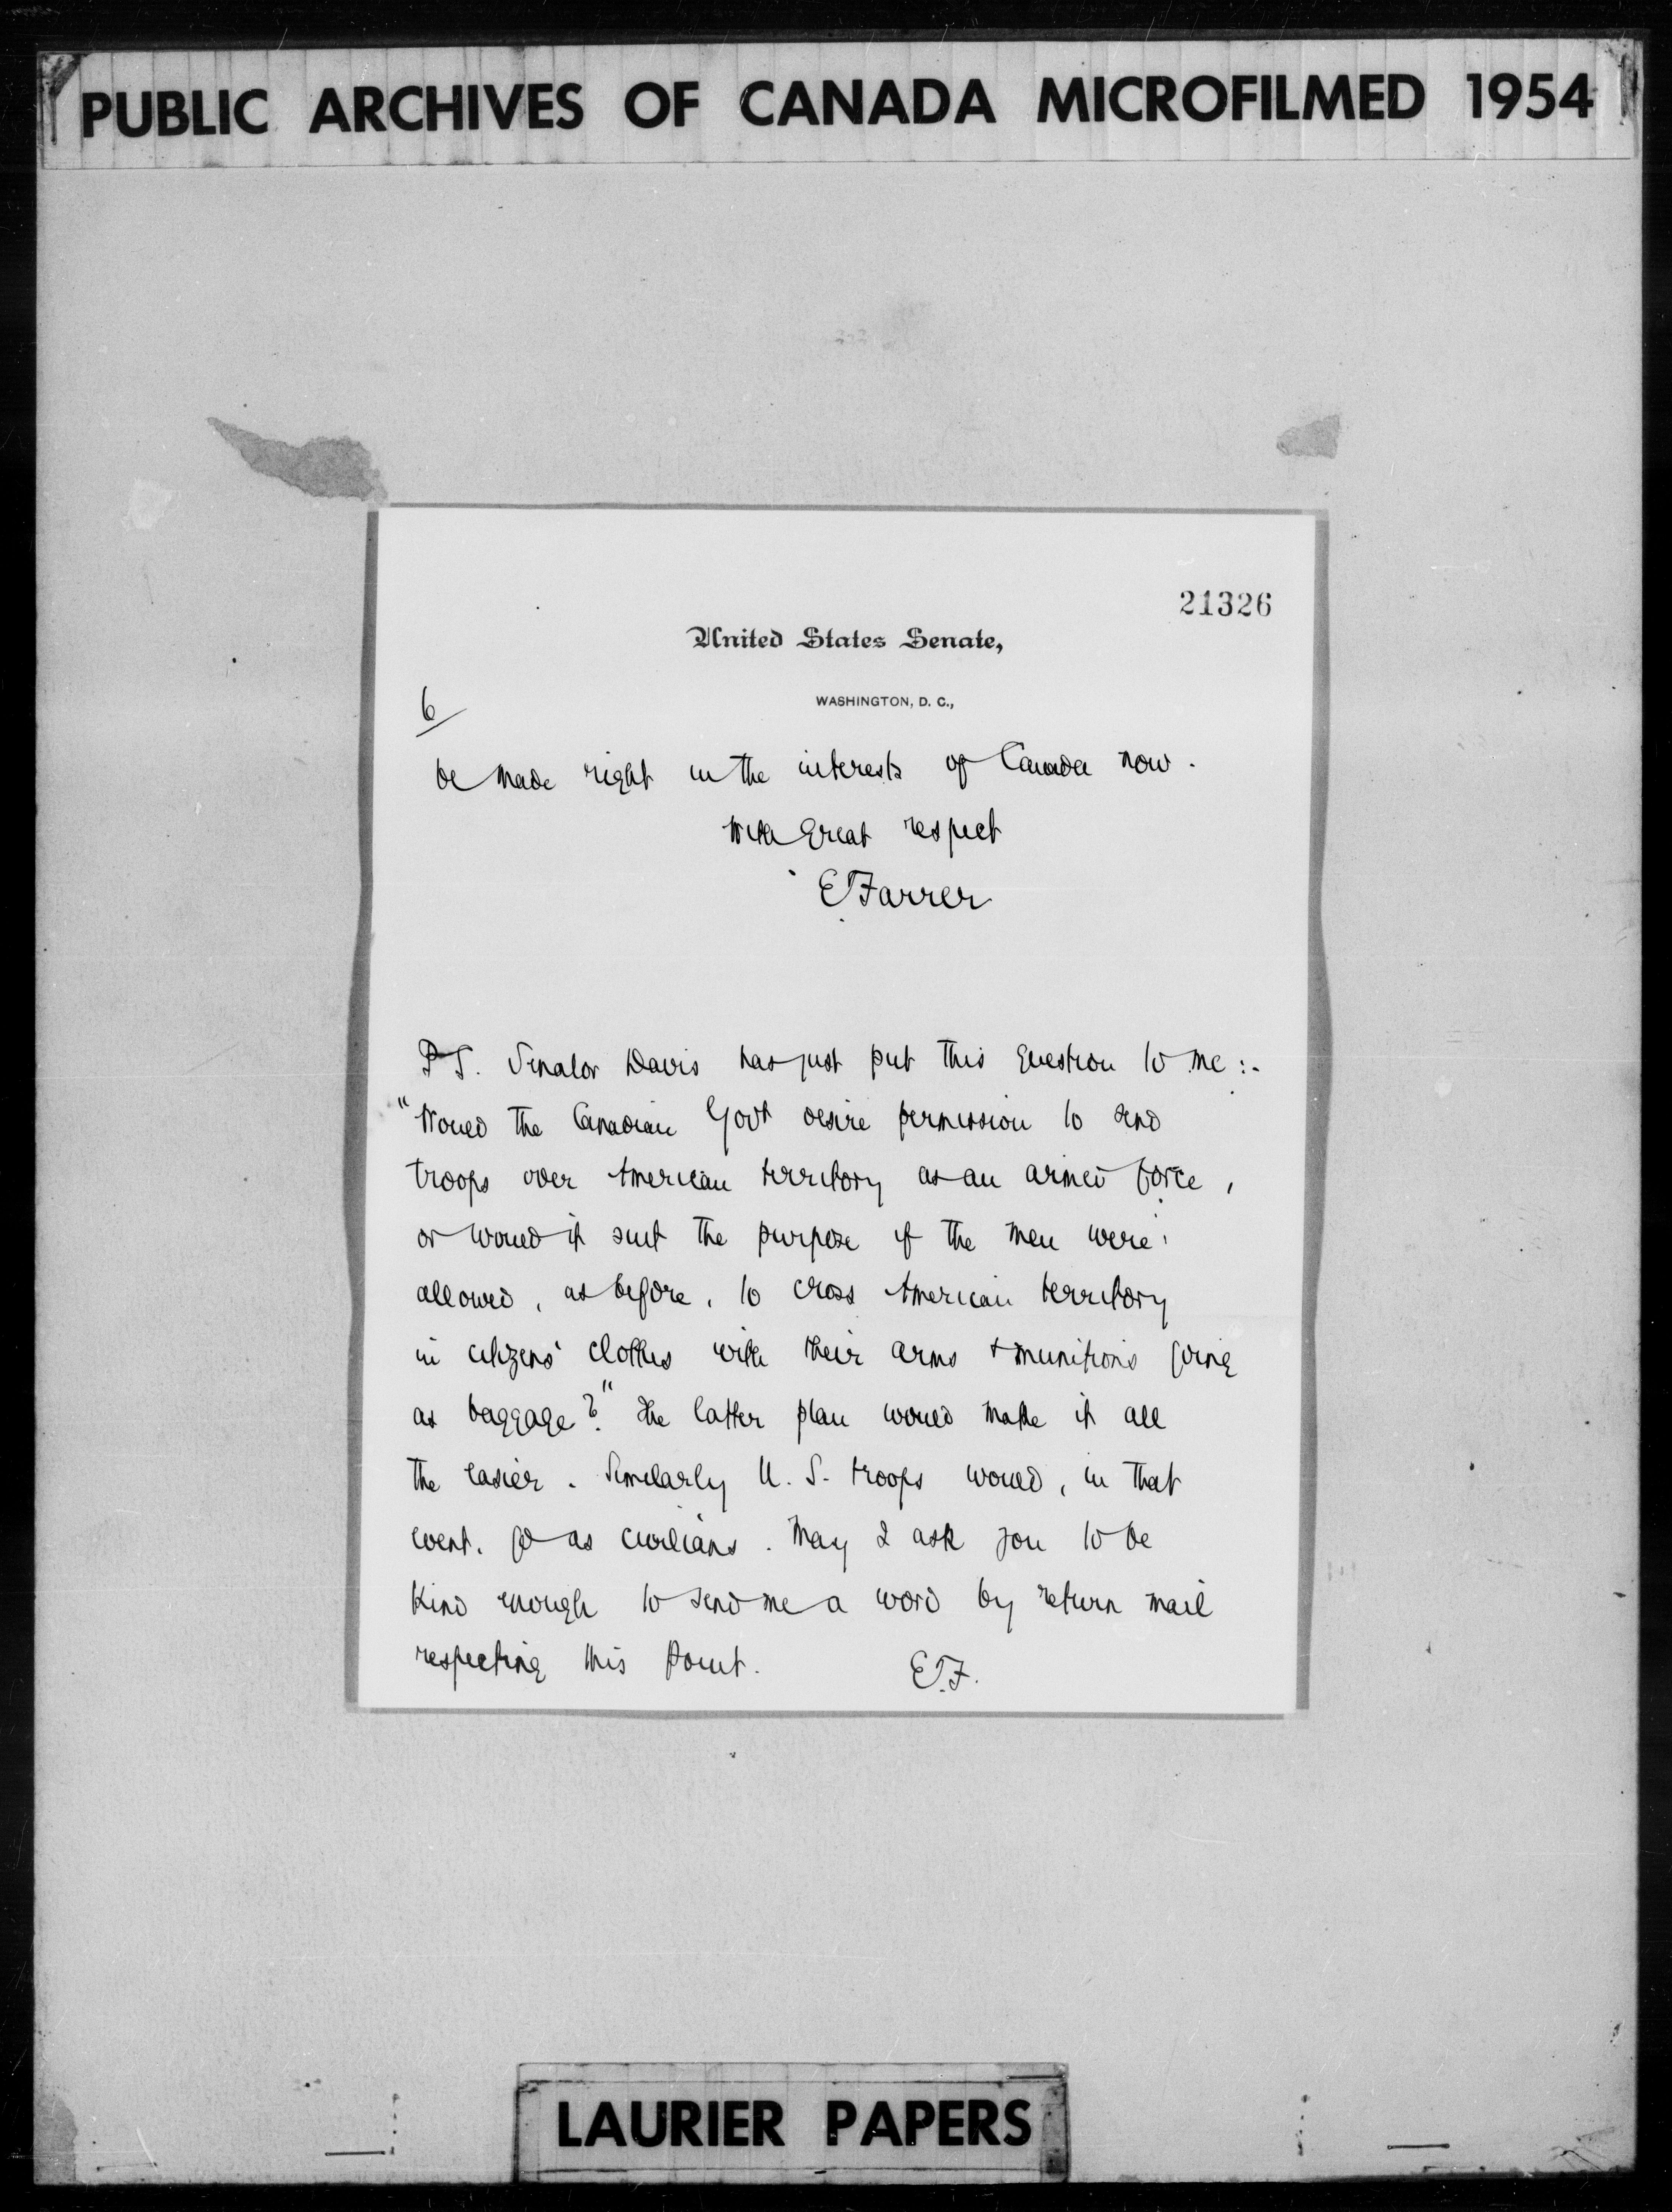 PUBLIC ARCHIVES OF CANADA MICROFILMED 1954
21326
United States Senate,
WASHINGTON, D. C.,
6
be made right in the interests of Canada now.
With great respect
E Farrer
P.S. Senator Davis has just put this question to me:-
"Would the Canadian Govt desire permission to send
troops over American territory as an armed force,
or would it suit the purpose if the men were
allowed, as before, to cross American territory
in citizens' clothes with their arms + munitions going
as baggage?" The latter plan would make it all
the easier. Similarly U. S. troops would, in that
event, go as civilians. May I ask you to be
kind enough to send me a word by return mail
respecting this point. E.F.
LAURIER PAPERS